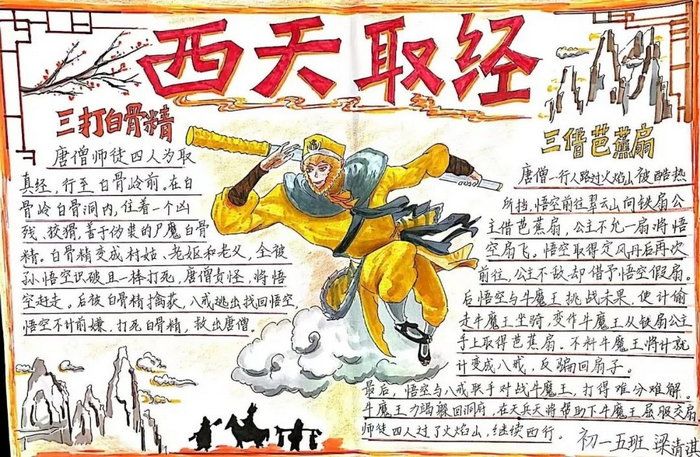 西天取经
三打白骨精
唐僧师徒四人为取
真经，行至白骨岭前。在白
骨岭白骨洞内，住着一个凶
残、狡猾、善于伪装的尸魔白骨
精。白骨精变成村姑、老妪和老父，全被
孙悟空识破且一棒打死，唐僧责怪，将悟
空赶走。后被白骨精擒获，八戒逃出找回悟空
悟空不计前嫌，打死白骨精，救出唐僧。
三借芭蕉扇
唐僧一行人路过火焰山被酷热
所挡，悟空前往翠云山向铁扇公
主借芭蕉扇，公主不允一扇将悟
空扇飞，悟空取得定风丹后再次
前往，公主不敌却借予悟空假扇。
后悟空与牛魔王挑战未果，使计偷
走牛魔王坐骑，变作牛魔王从铁扇公主
手上取得芭蕉扇，不料牛魔王将计就
计变成八戒，反骗回扇子。
最后，悟空与八戒联手对战牛魔王，打得难分难解。
牛魔王力竭躲回洞府，在天兵天将帮助下牛魔王屈服交扇
师徒四人过了火焰山，继续西行。
初一五班 梁清淇